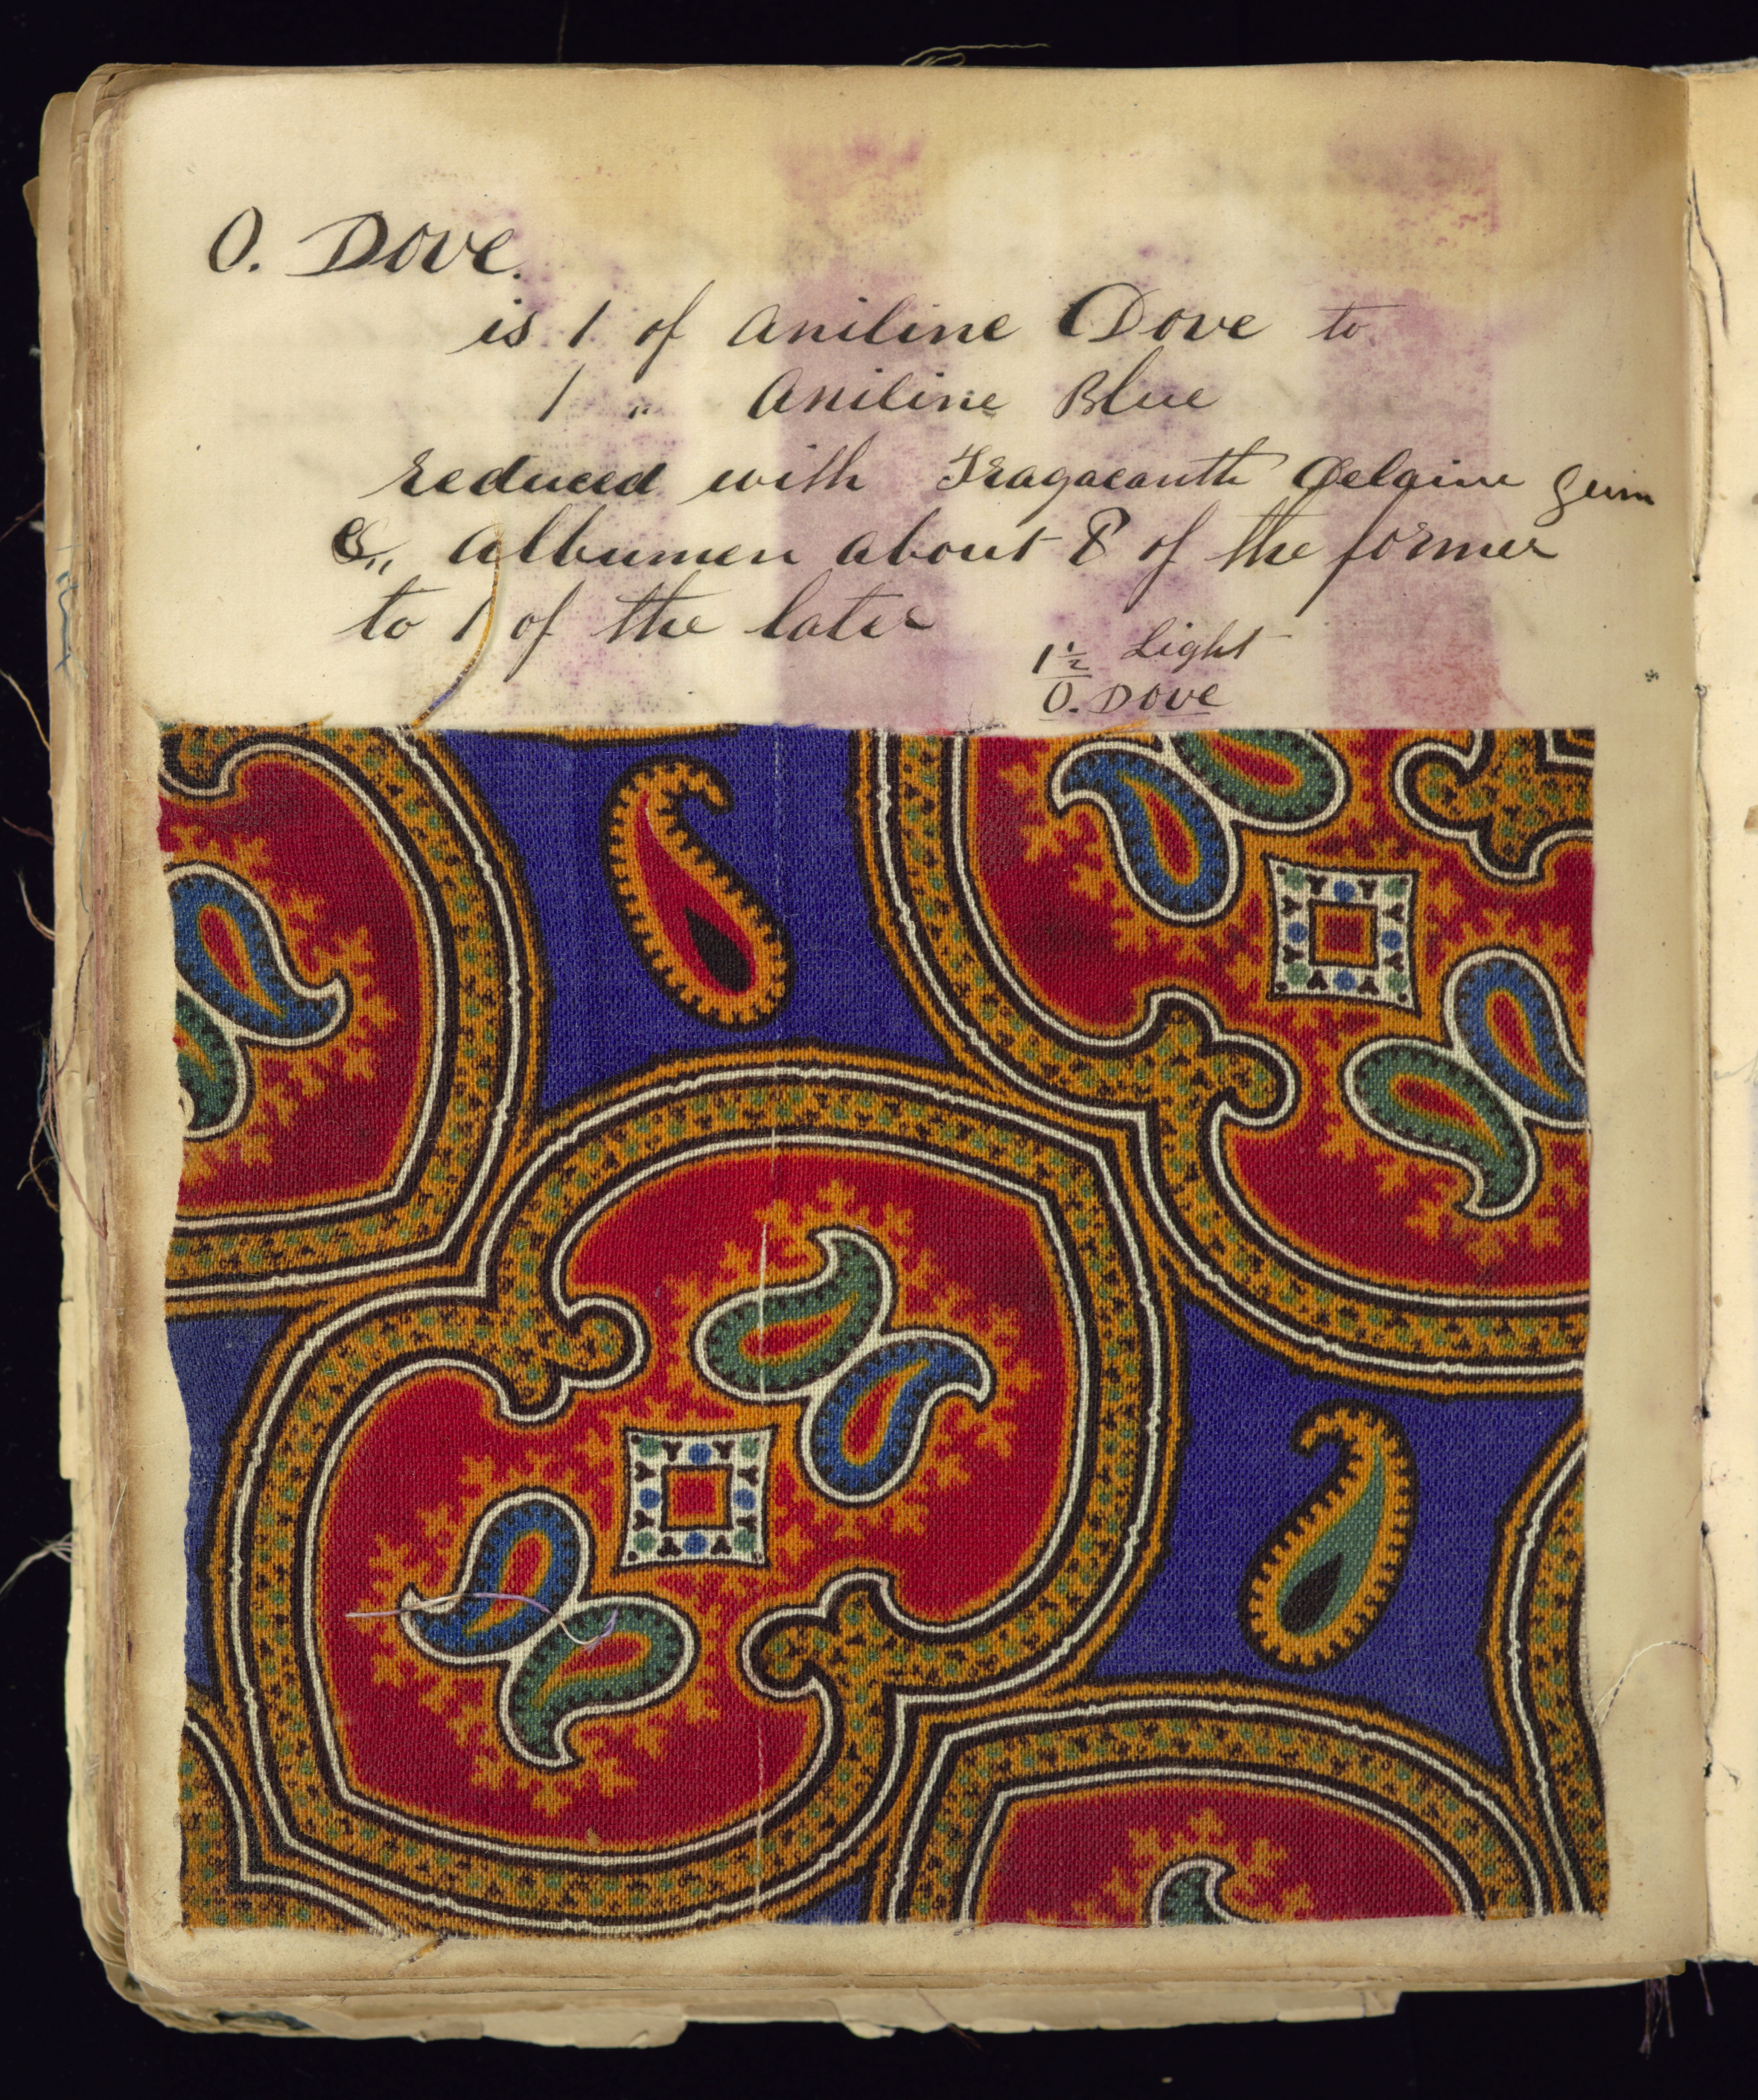 O. Dove.
is 1 of Aniline Dove to
1 " Aniline Blue
reduced with Tragacanth Delaine Gum
&,, Albumen about 8 of the former
to 1 of the later
1 1/2 Light
O. Dove